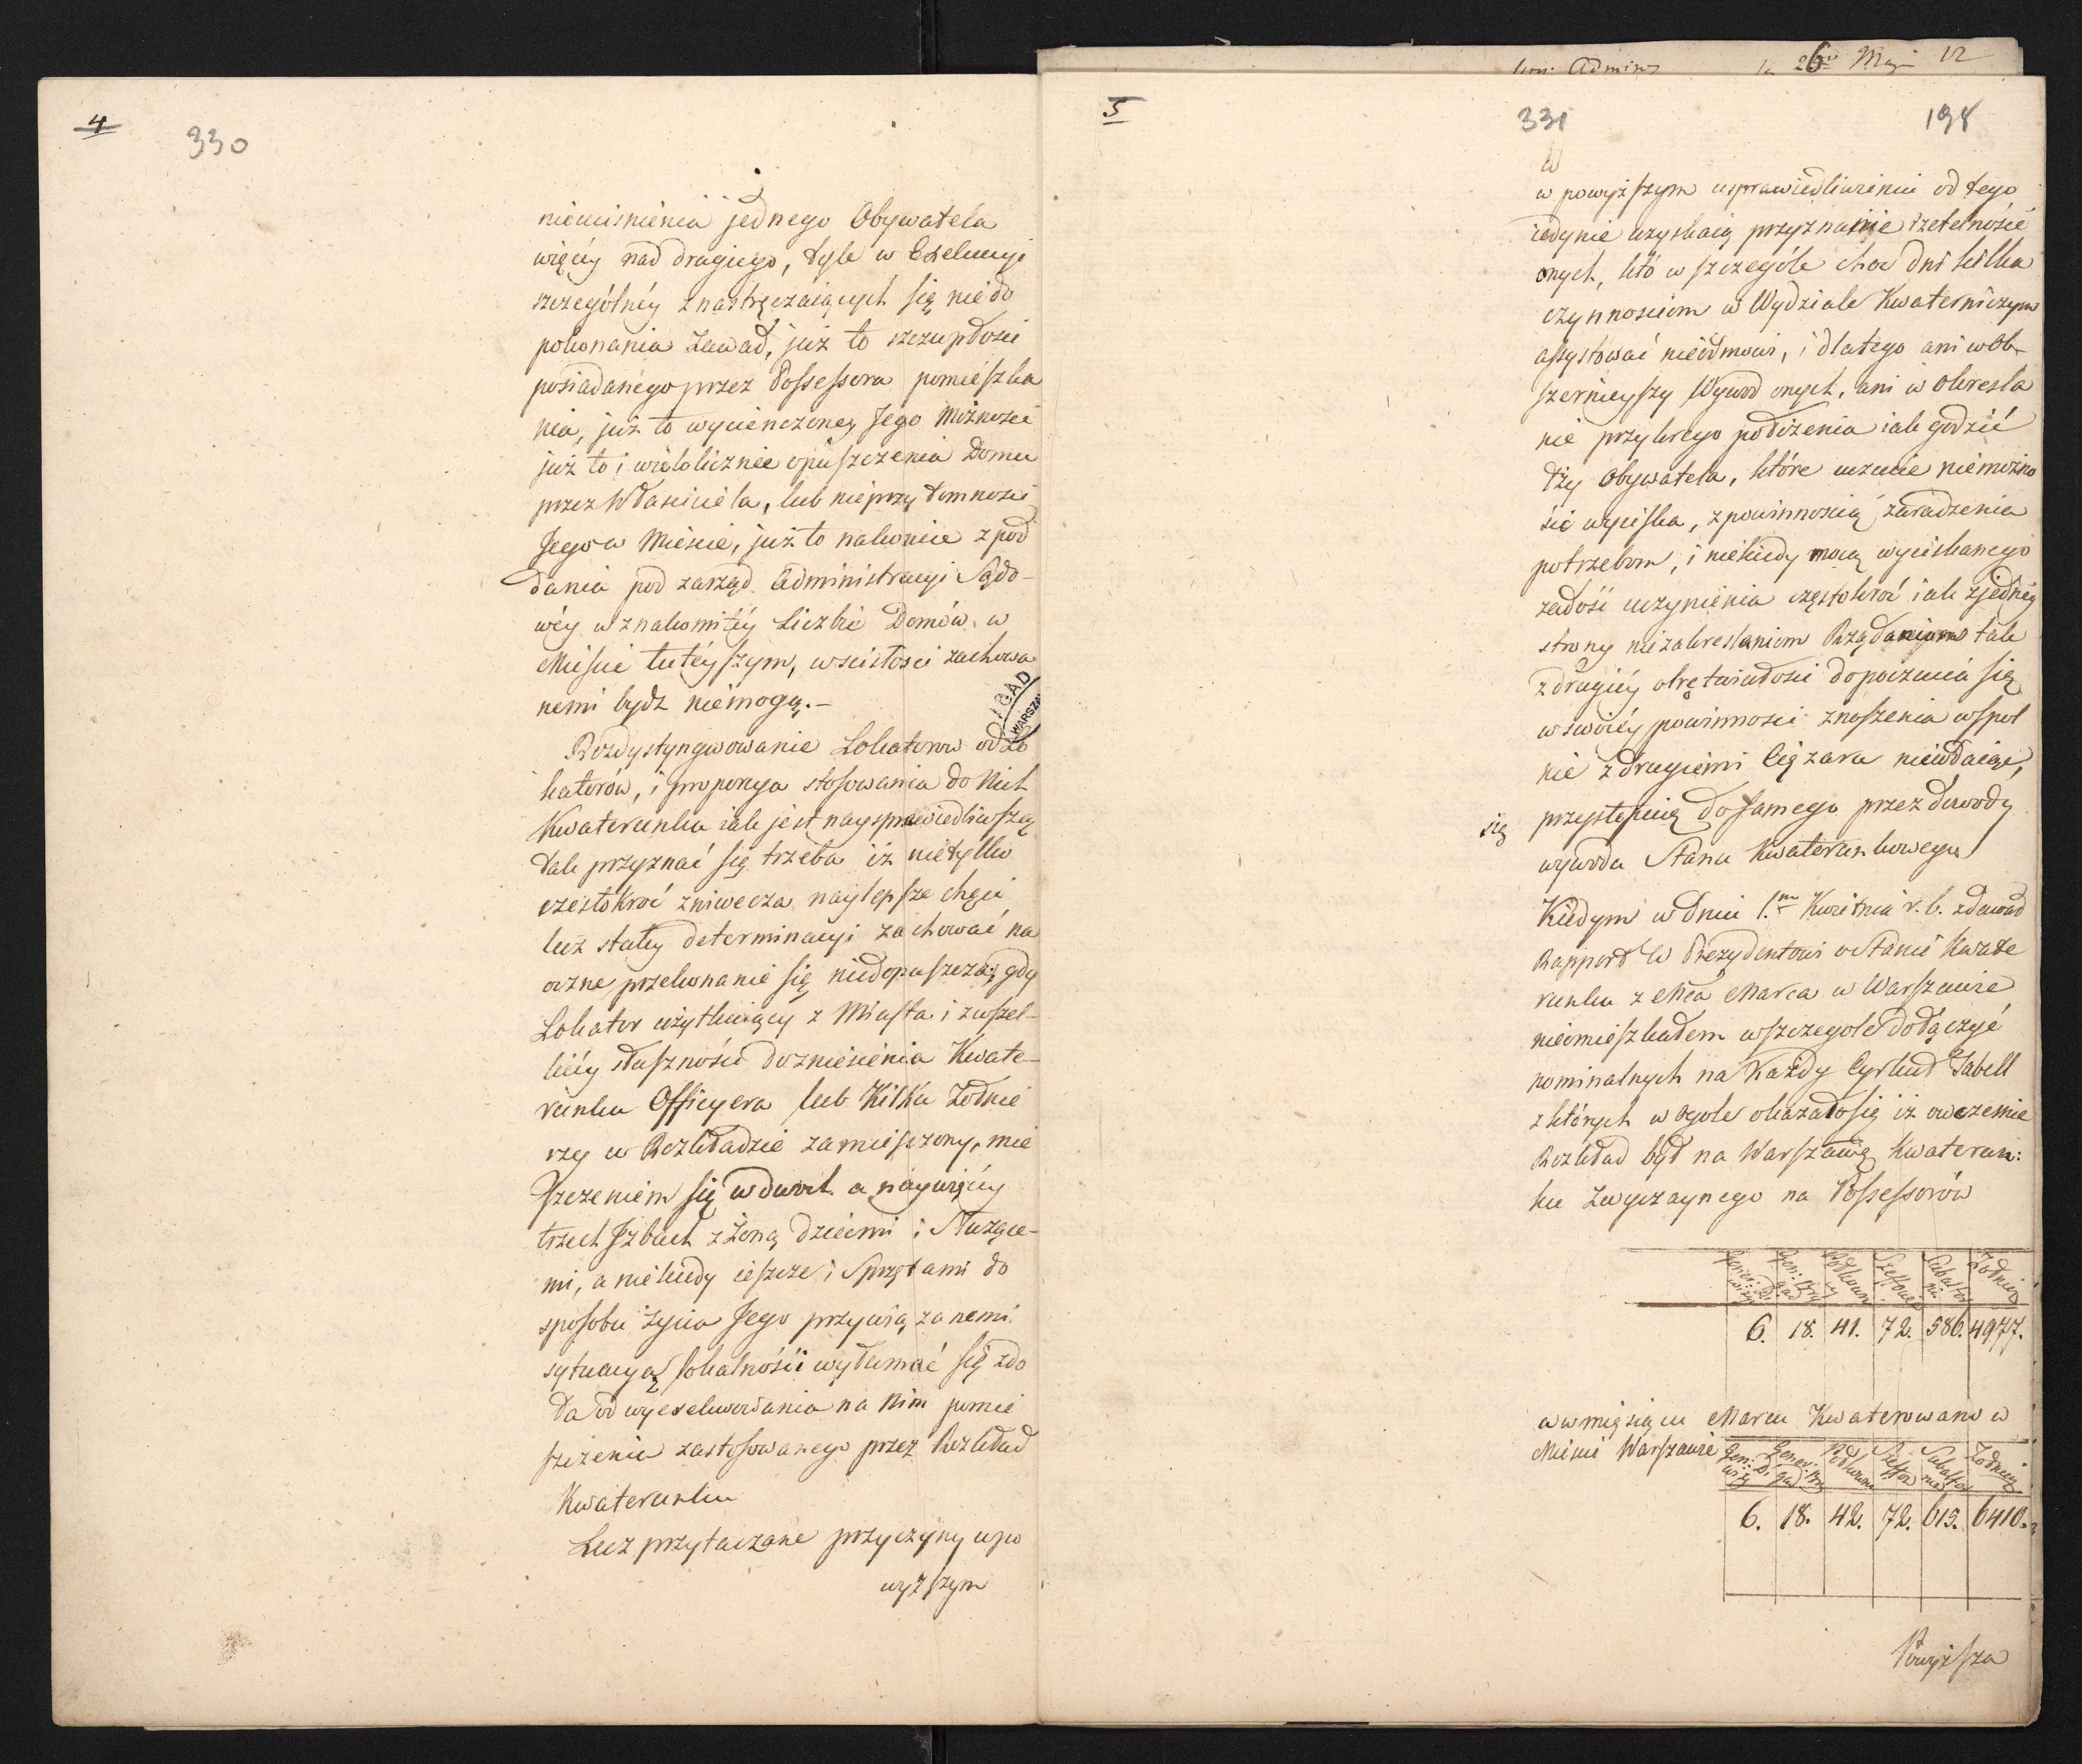 4
330
nieuciśnienia jednego Obywatela
więcy nad drugiego, tyle w Exekucyi
szczególnéy z nastręczaiących się niedo
pokonania Zawad, już to szczupłości
posiadanego przez Possessora pomieszka
nia, już to wycieńczoney Jego Możności
już to i wielolicznie opuszczenia Domu
przez Właściciela, lub nieprzytomności
Jego w Mieście, już to nakoniec z pod
dania pod zarząd Administracyi Sądo-
wéy w znakomitéy Liczbie Domów w
Mieście tutéyszym, w ścisłości zachowa
nemi bydź niemogą.-
Rozdystyngwowanie Lokatorów od Lo
katorów, i proporcya stosowania do Nich
Kwaterunku iak jest naysprawiedliwszą
tak przyznać się trzeba iż nietylko
częstokroć zniwecza naylepsze chęci
lecz stałéy determinacyi zachować na
oczne przekonanie się niedopuszcza; gdy
Lokator użytkuiący z Miasta i z wszel-
kiéy słuszności do zniesienia Kwate-
runku Officyera lub Kilku Żołnie
rzy w Rozkładzie zamieszczony, mie
szczeniem się w dwóch a naywięcy
trzech Izbach z Żoną dziećmi i Służące-
mi, a niekiedy ieszcze i Sprzętami do
sposobu życia Jego przywiązanemi
sytuacyą lokalności wyłamać się zdo
ła od wyexekwowania na Nim pomie
szczenia zastosowanego przez Rozkład
Kwaterunku
Lecz przytaczane przyczyny w po
wyższym
IGAD
WARSZA
26 Maj 12
5
331
198
w powyższym usprawiedliwieniu od tego
iedynie uzyskaią przyznanie rzetelności
onych, kto w szczególe choć dni kilka
czynnościom w Wydziale Kwaterniczym
assystować nieodmówi, i dlatego ani w ob
szernieyszy Wywod onych, ani w określa
nie przykrego położenia iak godzić
łzy Obywatela, które uczucie niemożno
ści wyciska, z powinnością zaradzenia
potrzebom, i niekiedy mocą wyciskanego
zadość uczynienia częstokroć iak z jednéy
strony niezakreślaniem Rządaniom tak
z drugiéy otrętwiałości do poczucia się
w swoiéy powinności znoszenia wspol
nie z drugiemi Ciężaru niewdaiąc,
się
przystępuię do samego przez dowody
wywodu Stanu Kwaterunkowego
Kiedym w dniu 1.m Kwietnia r. b. zdawał
Rapport W Prezydentowi o Stanie Kwate
runku z Mca Marca w Warszawie
nieomieszkałem w szczególe dołączyć
nominalnych na Każdy Cyrkuł Tabell
z których w ogole okazało się iż owczesnie
Rozkład był na Warszawę Kwaterun:
ku Zwyczaynego na Possessorów
Żołnierzy
6. 18. 41. 72. 586. 4977.
a w miesiącu Marcu Kwaterowano w
Mieście Warszawie
Żołnierzy
6. 18. 42. 72. 615. 6410.
Powyższa